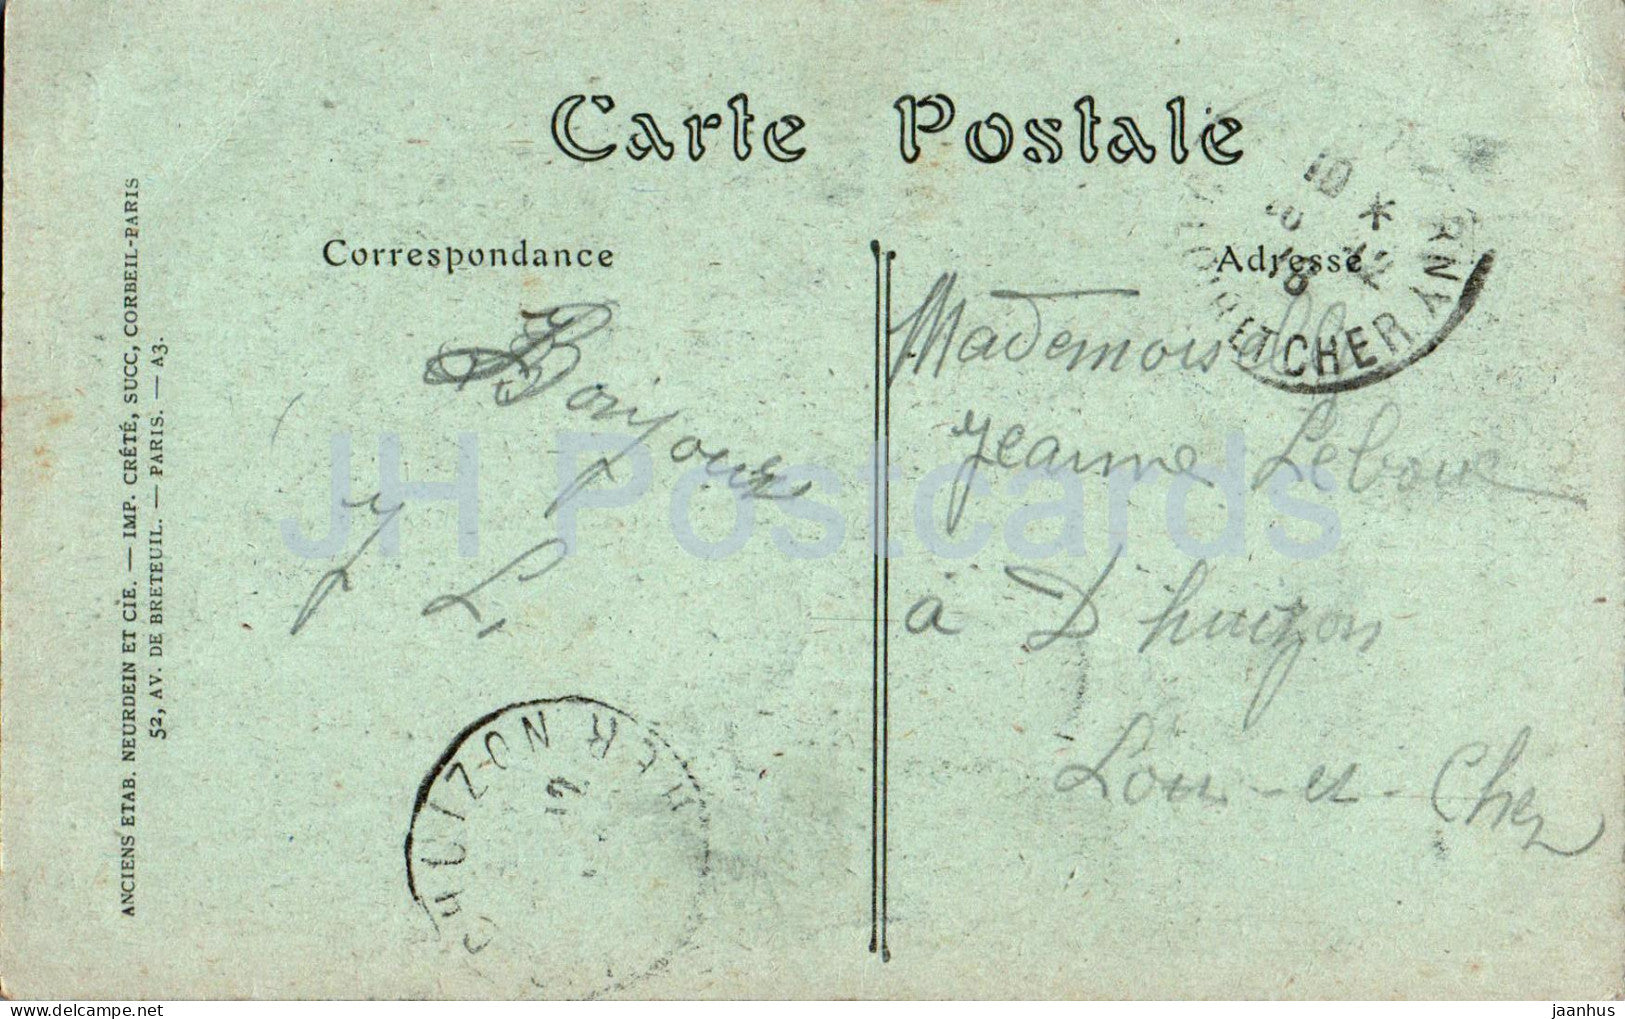 Carte Postale
Correspondance
Adresse
ANCIENS ETAB. NEURDEIN ET CIE. — IMP. CRÉTÉ, SUCC, CORBEIL-PARIS
52, AV. DE BRETEUIL. — PARIS. — A3.
Bonjour
J L
Mademoiselle
Jeanne Leboue
à D'huizon
Loir-et-Cher
ET CHER
HUIZON
JH Postcards
delcampe.net
jaanhus